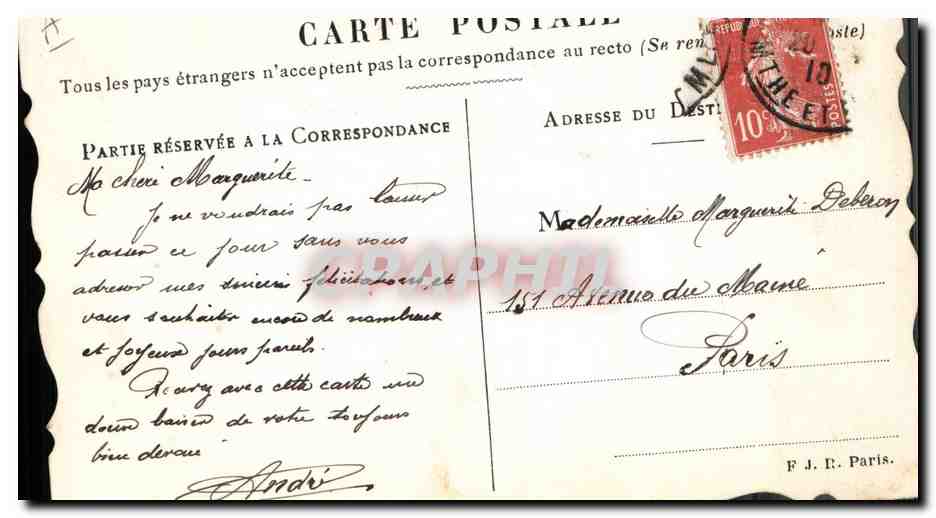 CARTE POSTALE
Tous les pays étrangers n'acceptent pas la correspondance au recto (Se ren oste)
PARTIE RÉSERVÉE A LA CORRESPONDANCE
Ma cheri Marguerite
Je ne voudrais pas laisser
passer ce jour sans vous
adresser mes sincères félicitations, et
vous souhaiter encore de nombreux
et joyeux jours pareils.
Recevez avec cette carte un
doux baiser de votre toujours
bien dévoué
André
ADRESSE DU DESTI
Mademoiselle Marguerite Deberon
151 Avenue du Maine
Paris
F J. R. Paris.
10c
POSTES
10
CPAPHIL